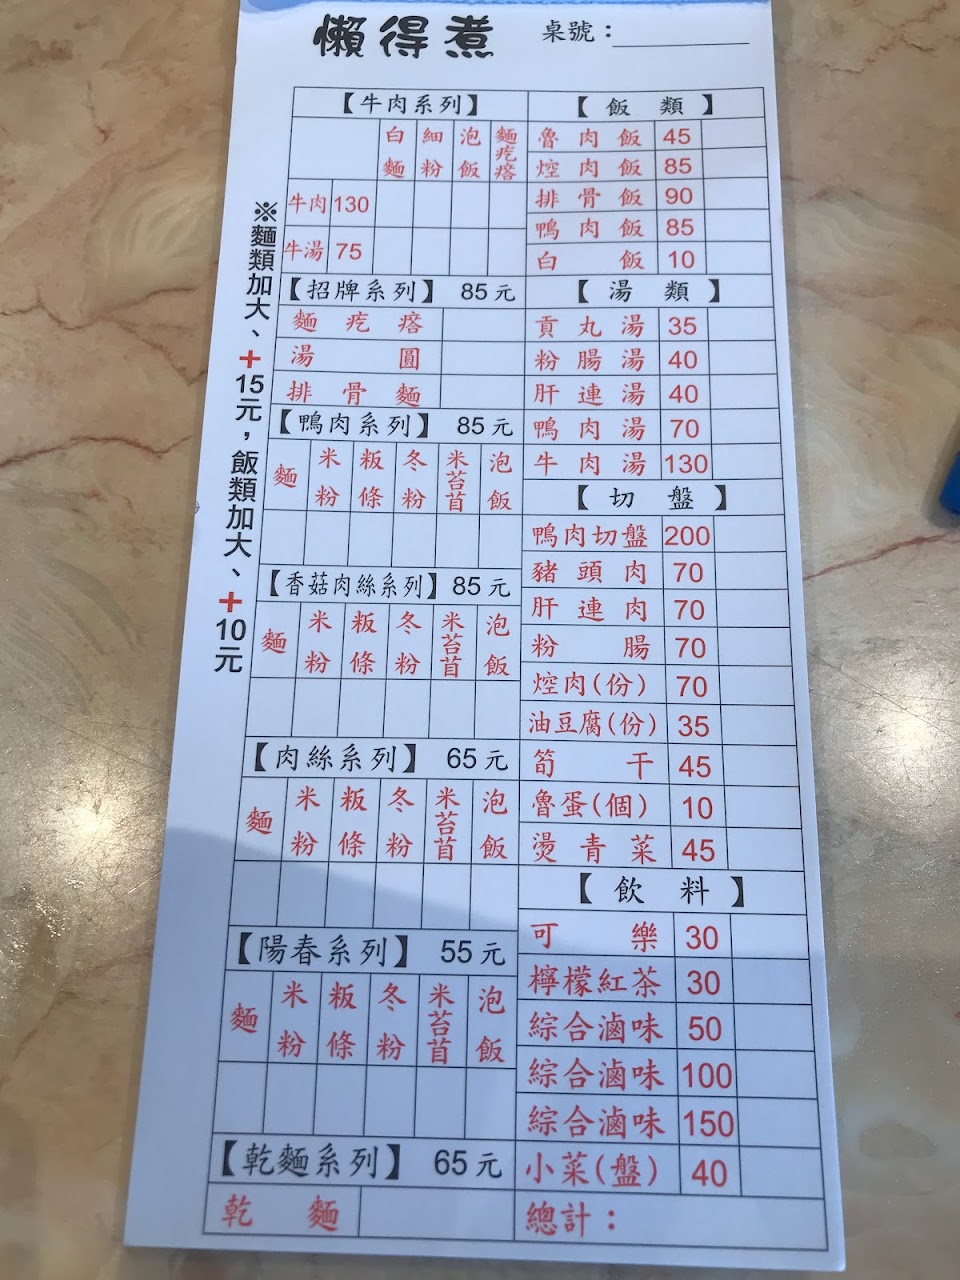 懶得煮 桌號：
※麵類加大、+15元，飯類加大、+10元
【牛肉系列】
白麵 細粉 泡飯 麵疙瘩
牛肉 130
牛湯 75
【招牌系列】 85元
麵疙瘩
湯圓
排骨麵
【鴨肉系列】 85元
麵 米粉 粄條 冬粉 米苔苜 泡飯
【香菇肉絲系列】 85元
麵 米粉 粄條 冬粉 米苔苜 泡飯
【肉絲系列】 65元
麵 米粉 粄條 冬粉 米苔苜 泡飯
【陽春系列】 55元
麵 米粉 粄條 冬粉 米苔苜 泡飯
【乾麵系列】 65元
乾麵
【飯類】
魯肉飯 45
焢肉飯 85
排骨飯 90
鴨肉飯 85
白飯 10
【湯類】
貢丸湯 35
粉腸湯 40
肝連湯 40
鴨肉湯 70
牛肉湯 130
【切盤】
鴨肉切盤 200
豬頭肉 70
肝連肉 70
粉腸 70
焢肉(份) 70
油豆腐(份) 35
筍干 45
魯蛋(個) 10
燙青菜 45
【飲料】
可樂 30
檸檬紅茶 30
綜合滷味 50
綜合滷味 100
綜合滷味 150
小菜(盤) 40
總計：